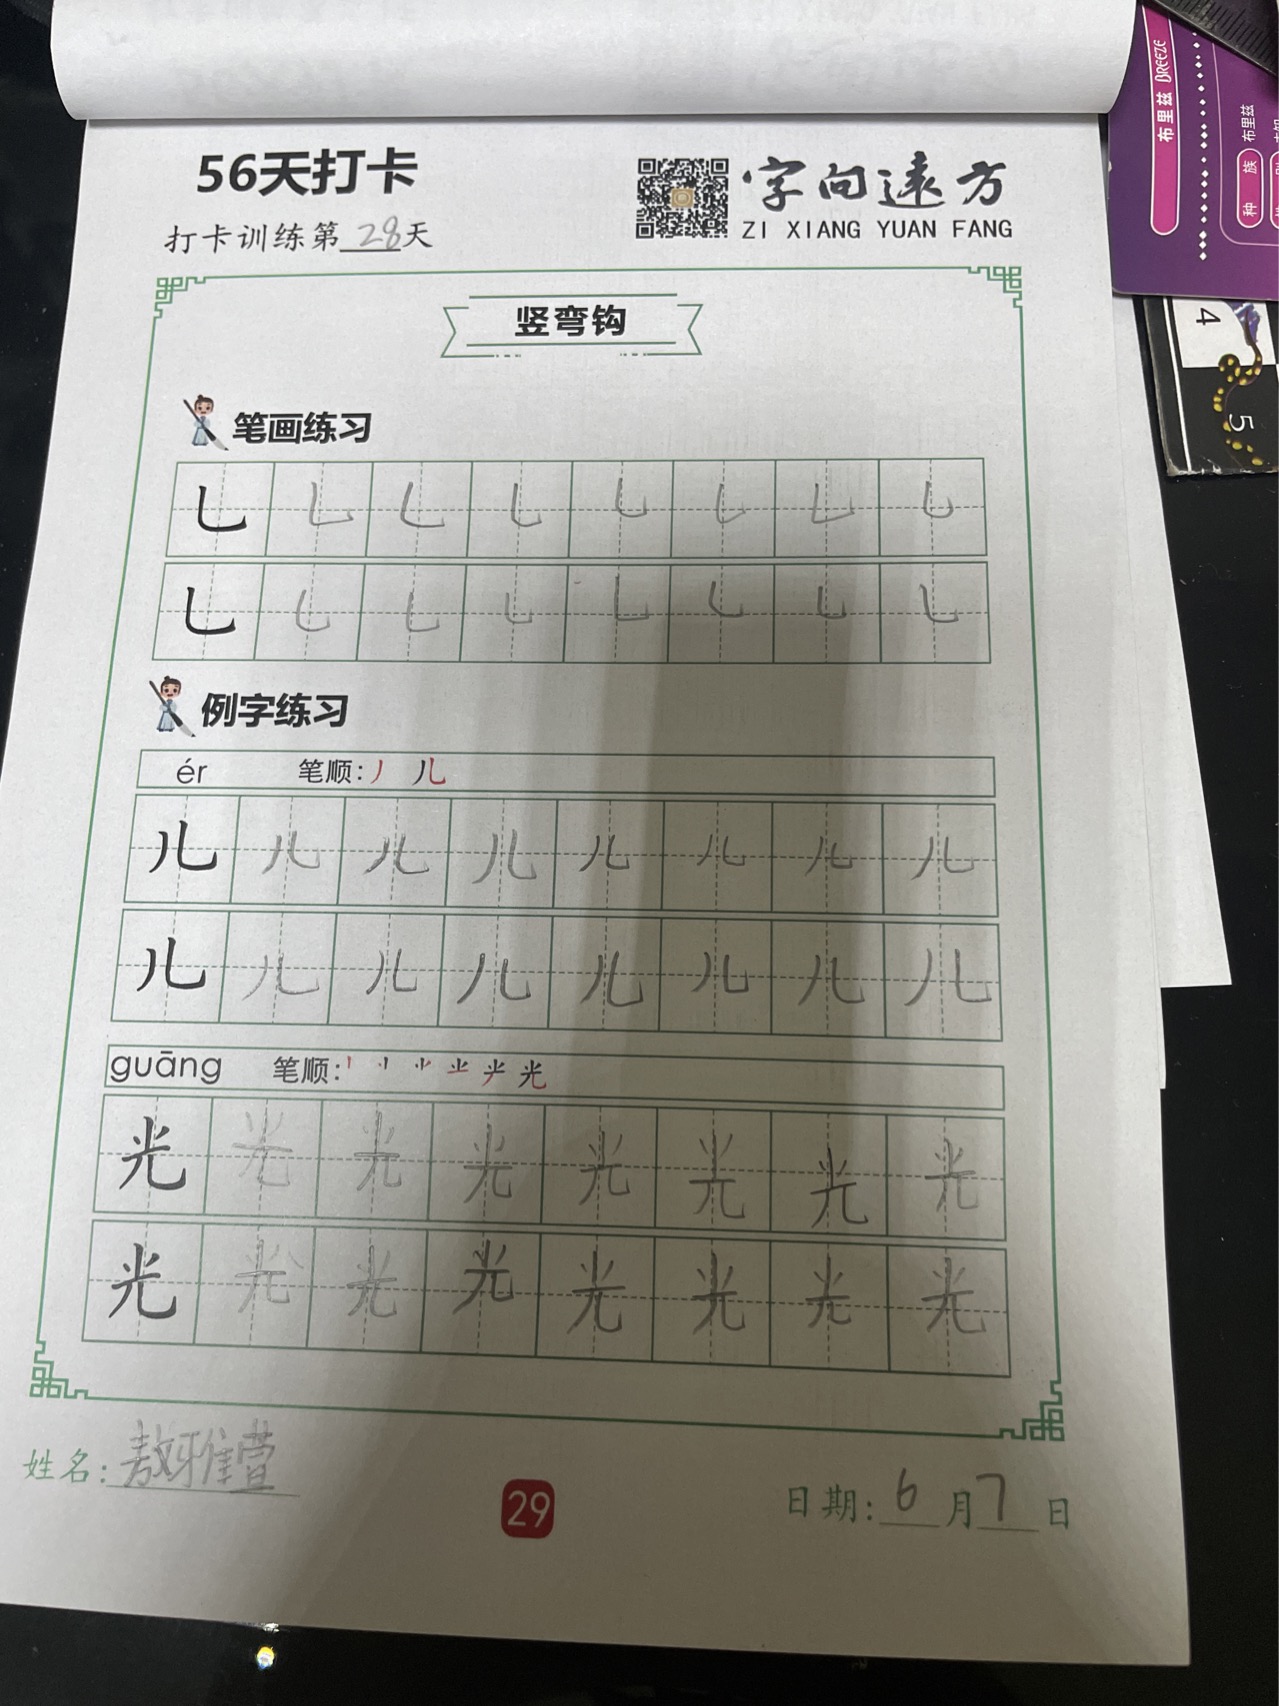 56天打卡
打卡训练第28天
字向遠方
ZI XIANG YUAN FANG
竖弯钩
笔画练习
乚 乚 乚 乚 乚 乚 乚 乚
乚 乚 乚 乚 乚 乚 乚 乚
例字练习
ér 笔顺:丿 儿
儿 儿 儿 儿 儿 儿 儿 儿
儿 儿 儿 儿 儿 儿 儿 儿
guāng 笔顺: 光
光 光 光 光 光 光 光 光
光 光 光 光 光 光 光 光
姓名:敖雅萱
29
日期:6月7日
布里兹 BREEZE
种族 布里兹
4
5